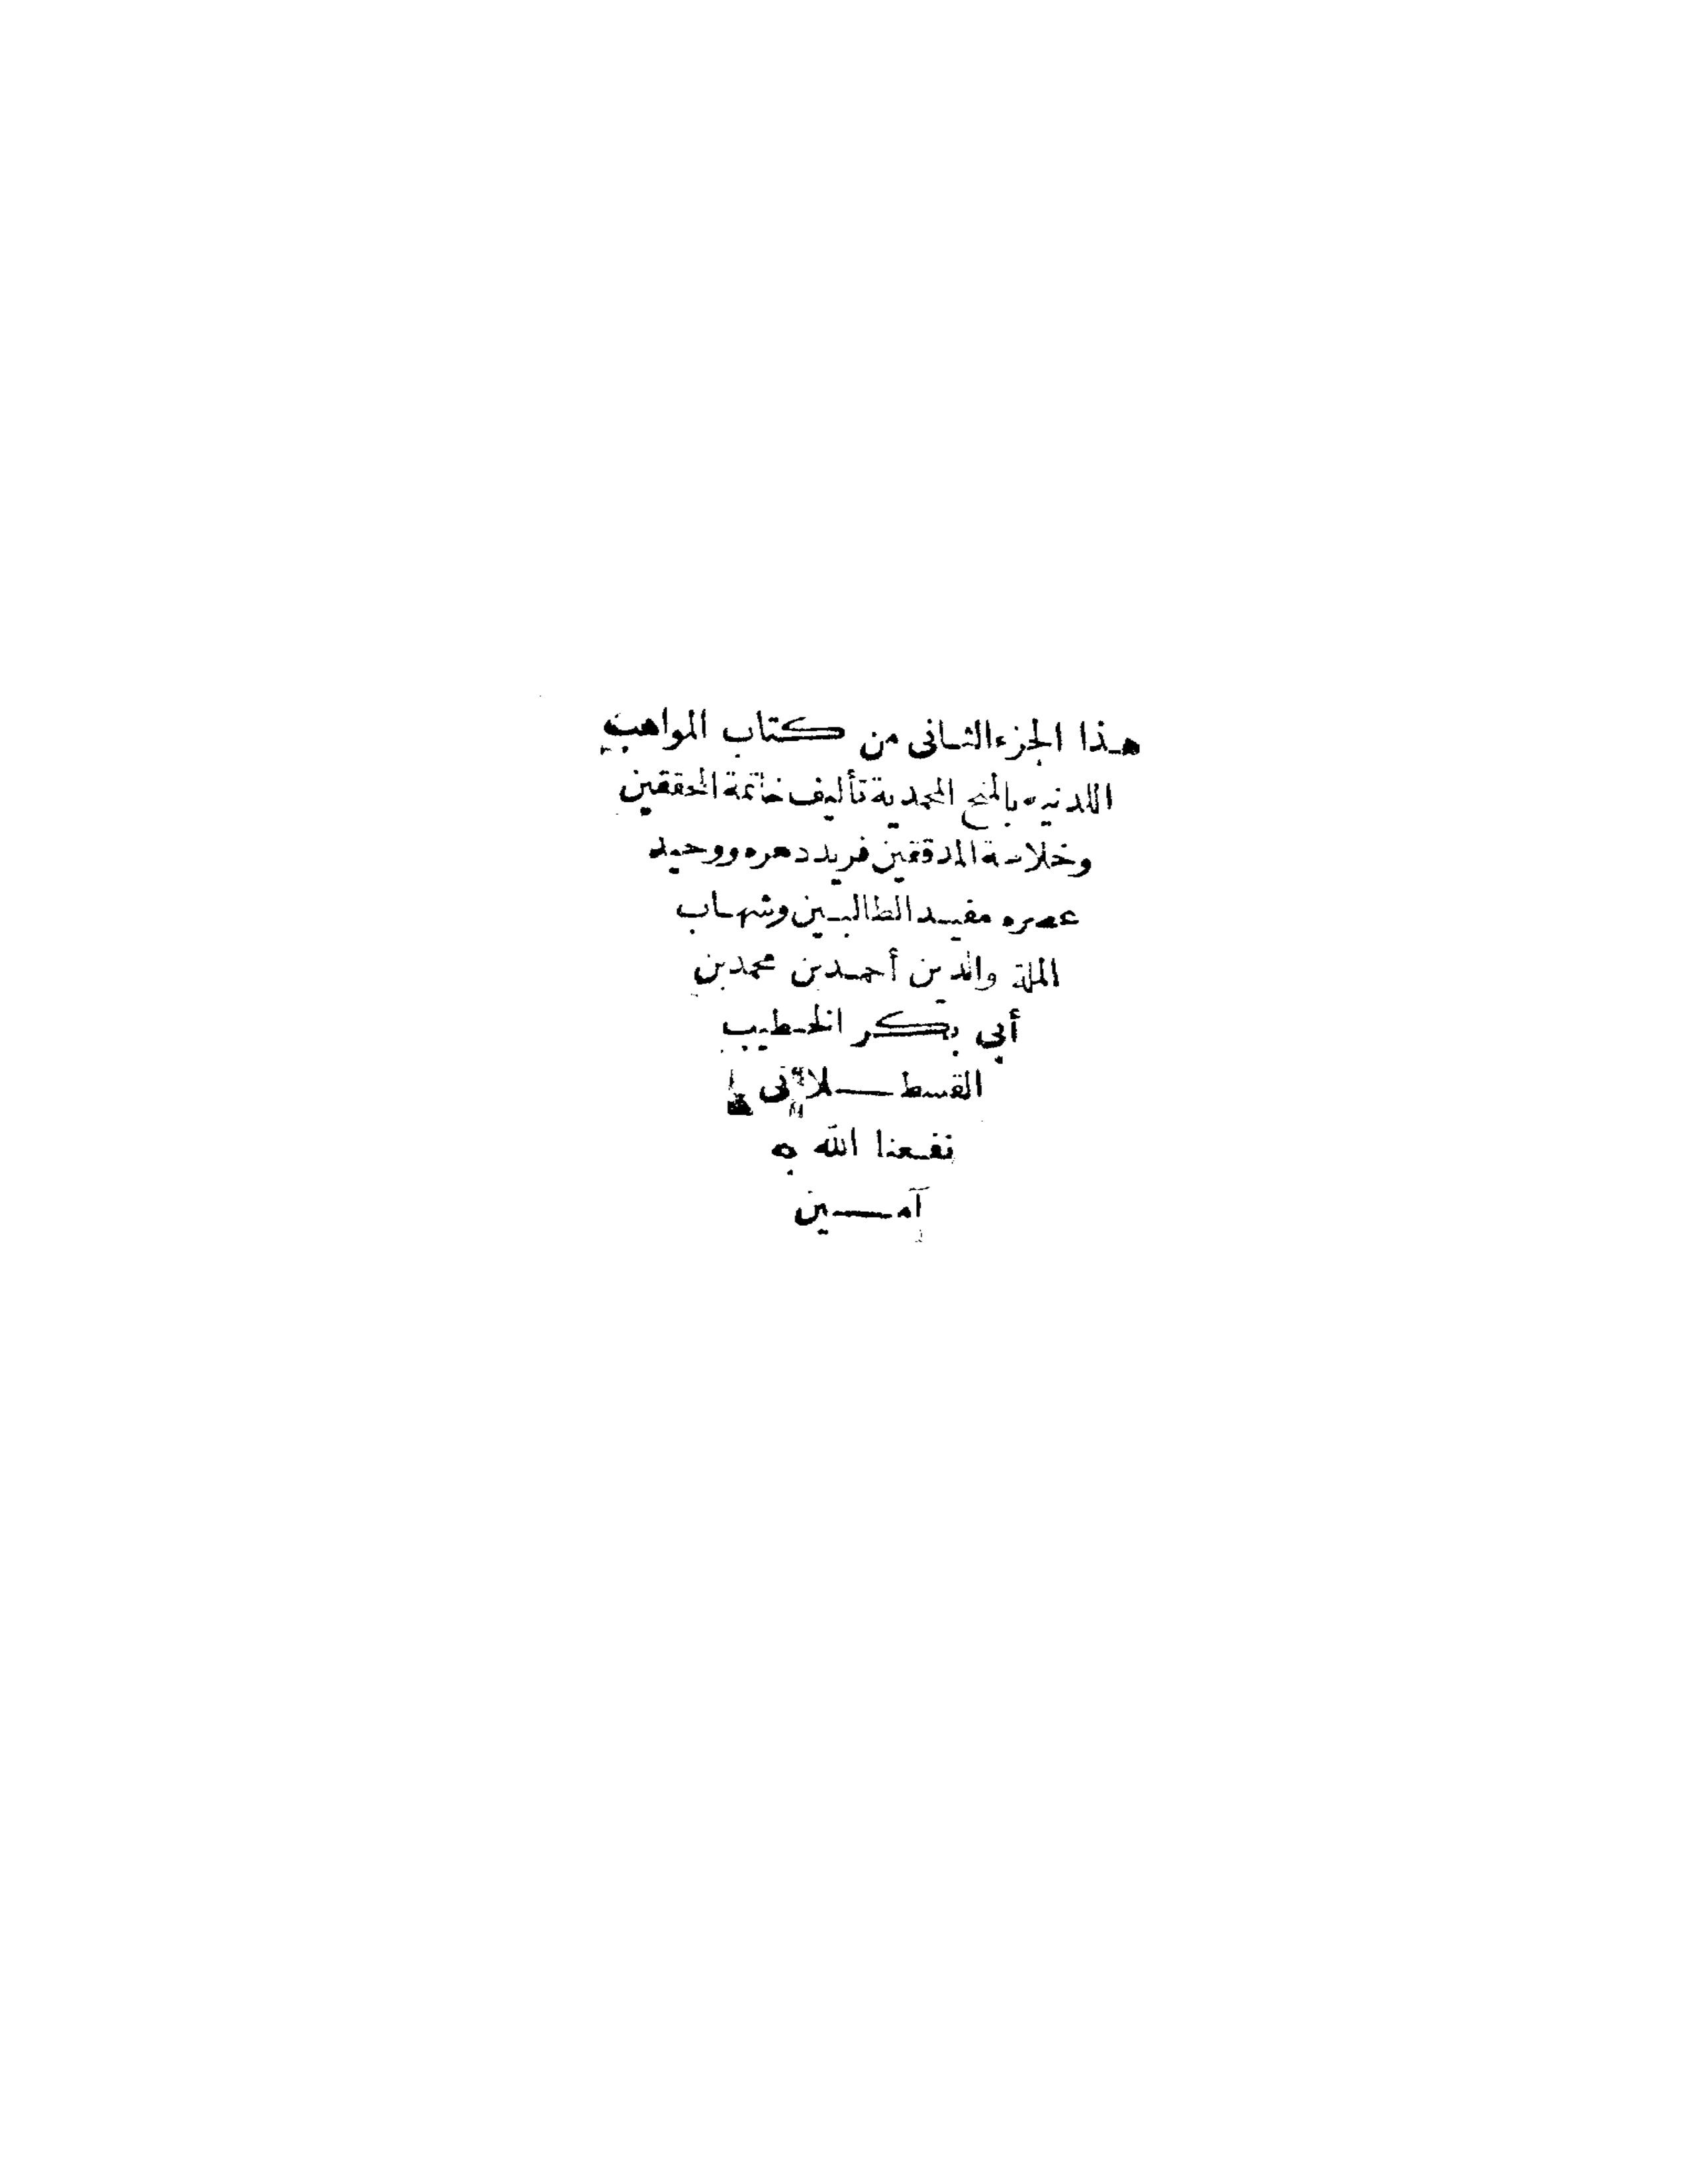 هذا الجزء الثانى من كتاب المواهب
اللدنيه بالمنح المحمدية تأليف خاتمة المحققين
وخلاصة المدققين فريد دهره ووحيد
عصره مفيد الطالبين وشهاب
الملة والدين أحمد بن محمد بن
أبى بكر الخطيب
القسطلانى
نفعنا الله به
آمين